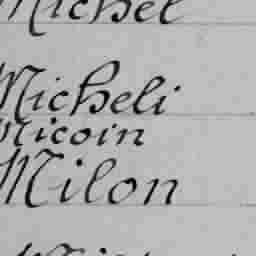 Michel
Micheli
Micoin
Milon